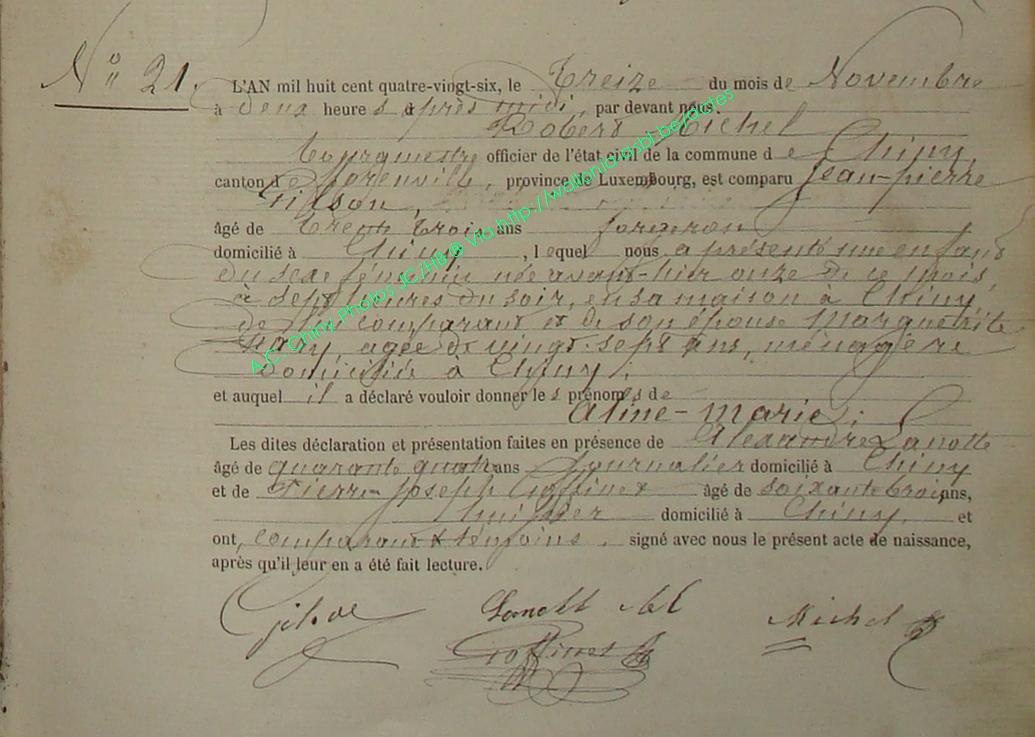 N° 21.
L'AN mil huit cent quatre-vingt-six, le Treize du mois de Novembre
à deux heures après midi, par devant nous.
Robert Michel
bourgmestre officier de l'état civil de la commune de Chiny,
canton de Florenville, province de Luxembourg, est comparu Jean-pierre
Gilson,
âgé de trente trois ans forgeron
domicilié à Chiny, lequel nous a présenté une enfant
du sexe féminin née avant-hier onze de ce mois,
à sept heures du soir, en sa maison à Chiny,
de lui comparant et de son épouse Marguerite
agée de vingt-sept ans, ménagère
domiciliée à Chiny;
et auquel il a déclaré vouloir donner les prénoms de
Aline-marie;
Les dites déclaration et présentation faites en présence de Alexandre Lanotte
âgé de quarante quatre ans journalier domicilié à Chiny
et de Pierre-Joseph Goffinet âgé de soixante trois ans,
domicilié à Chiny, et
ont, comparant & témoins, signé avec nous le présent acte de naissance,
après qu'il leur en a été fait lecture.
Michel
Goffinet
A.C. Chiny Photos JC/HB @ via http://wallonia.asbl.be/actes